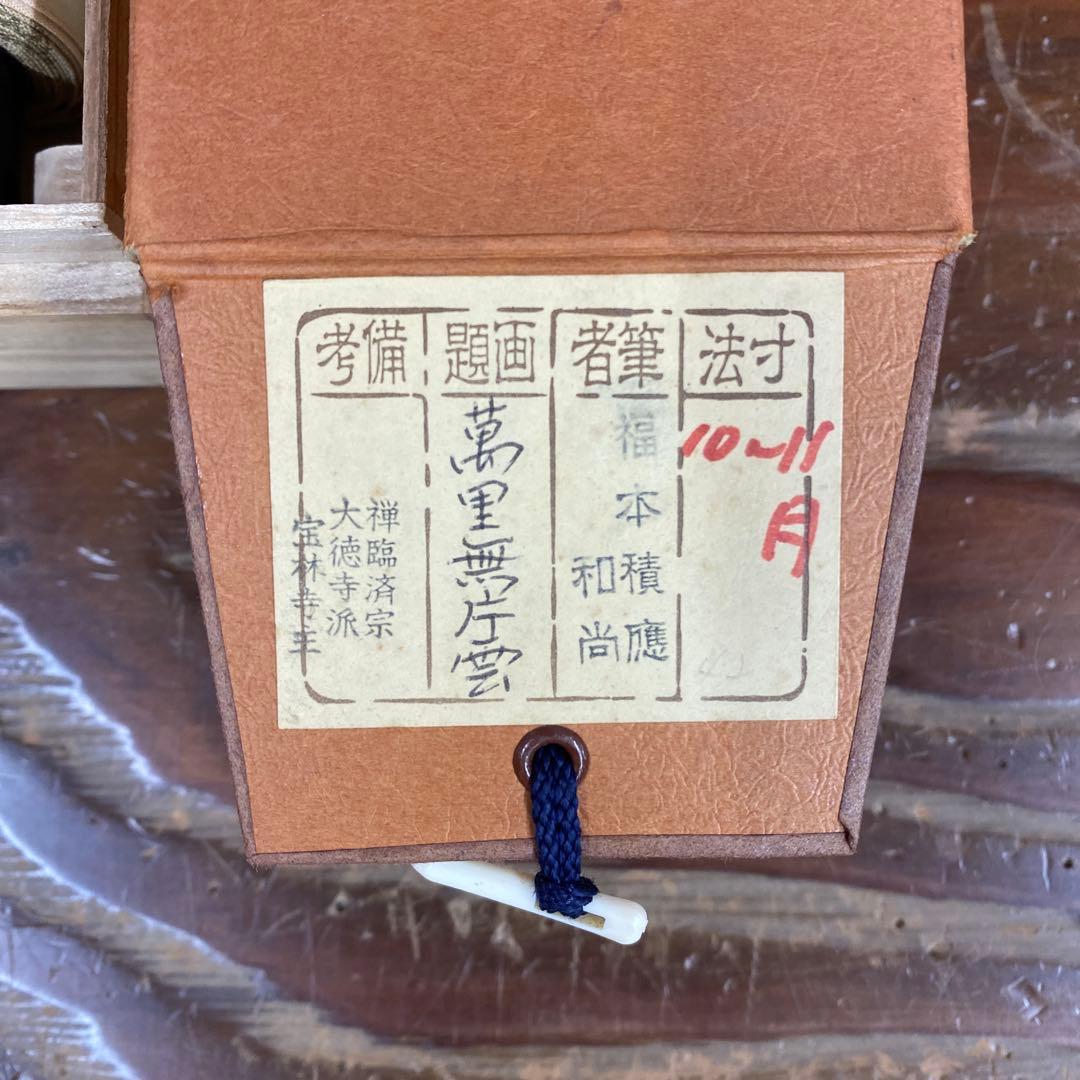 寸法
10~11
月
筆者
福本積應
和尚
画題
萬里無片雲
備考
禅臨済宗
大徳寺派
宝林寺主